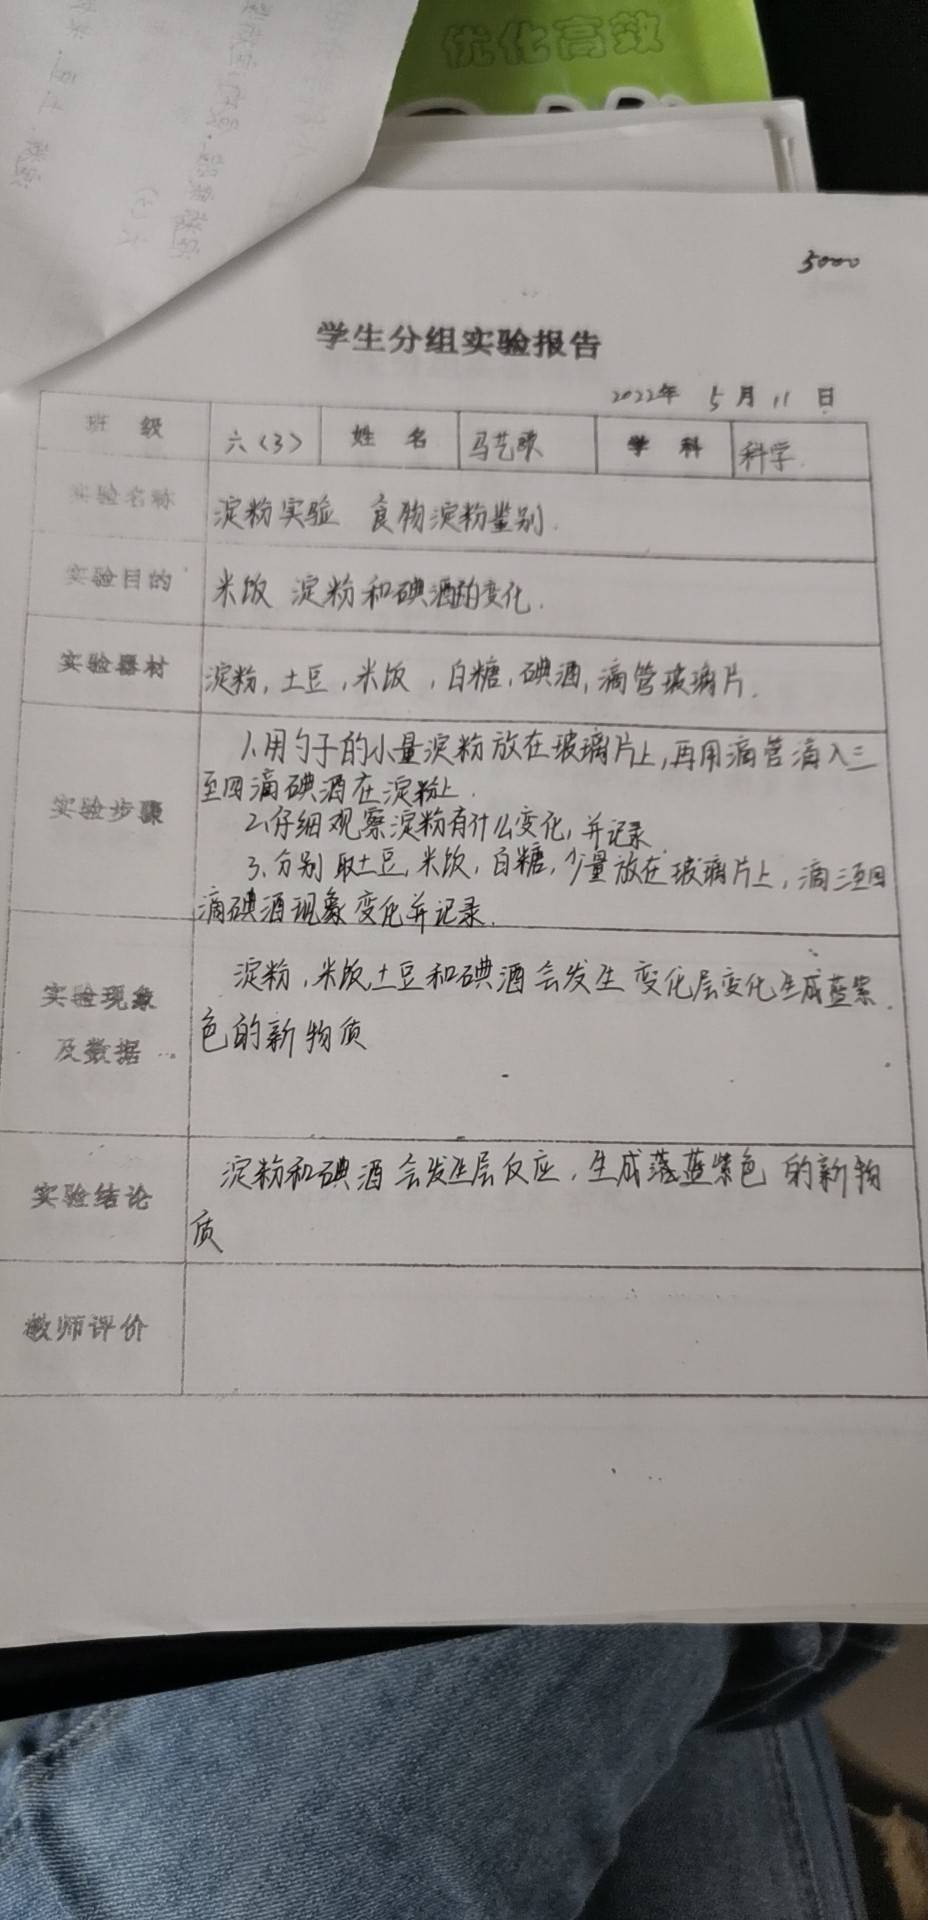 优化高效
5000
学生分组实验报告
2022年 5月11日
班 级 六(3) 姓 名 马艺 学 科 科学.
实验名称 淀粉实验 食物淀粉鉴别.
实验目的 米饭 淀粉和碘酒的变化.
实验器材 淀粉,土豆,米饭,白糖,碘酒,滴管玻璃片.
1.用勺子的小量淀粉放在玻璃片上,再用滴管滴入三
实验步骤 至四滴碘酒在淀粉上.
2.仔细观察淀粉有什么变化,并记录
3.分别取土豆,米饭,白糖,少量放在玻璃片上,滴三至四
滴碘酒现象变化并记录.
实验现象 淀粉,米饭,土豆和碘酒会发生变化层变化生成蓝紫
及数据 色的新物质
实验结论 淀粉和碘酒会发生层反应,生成蓝紫色的新物
质
教师评价